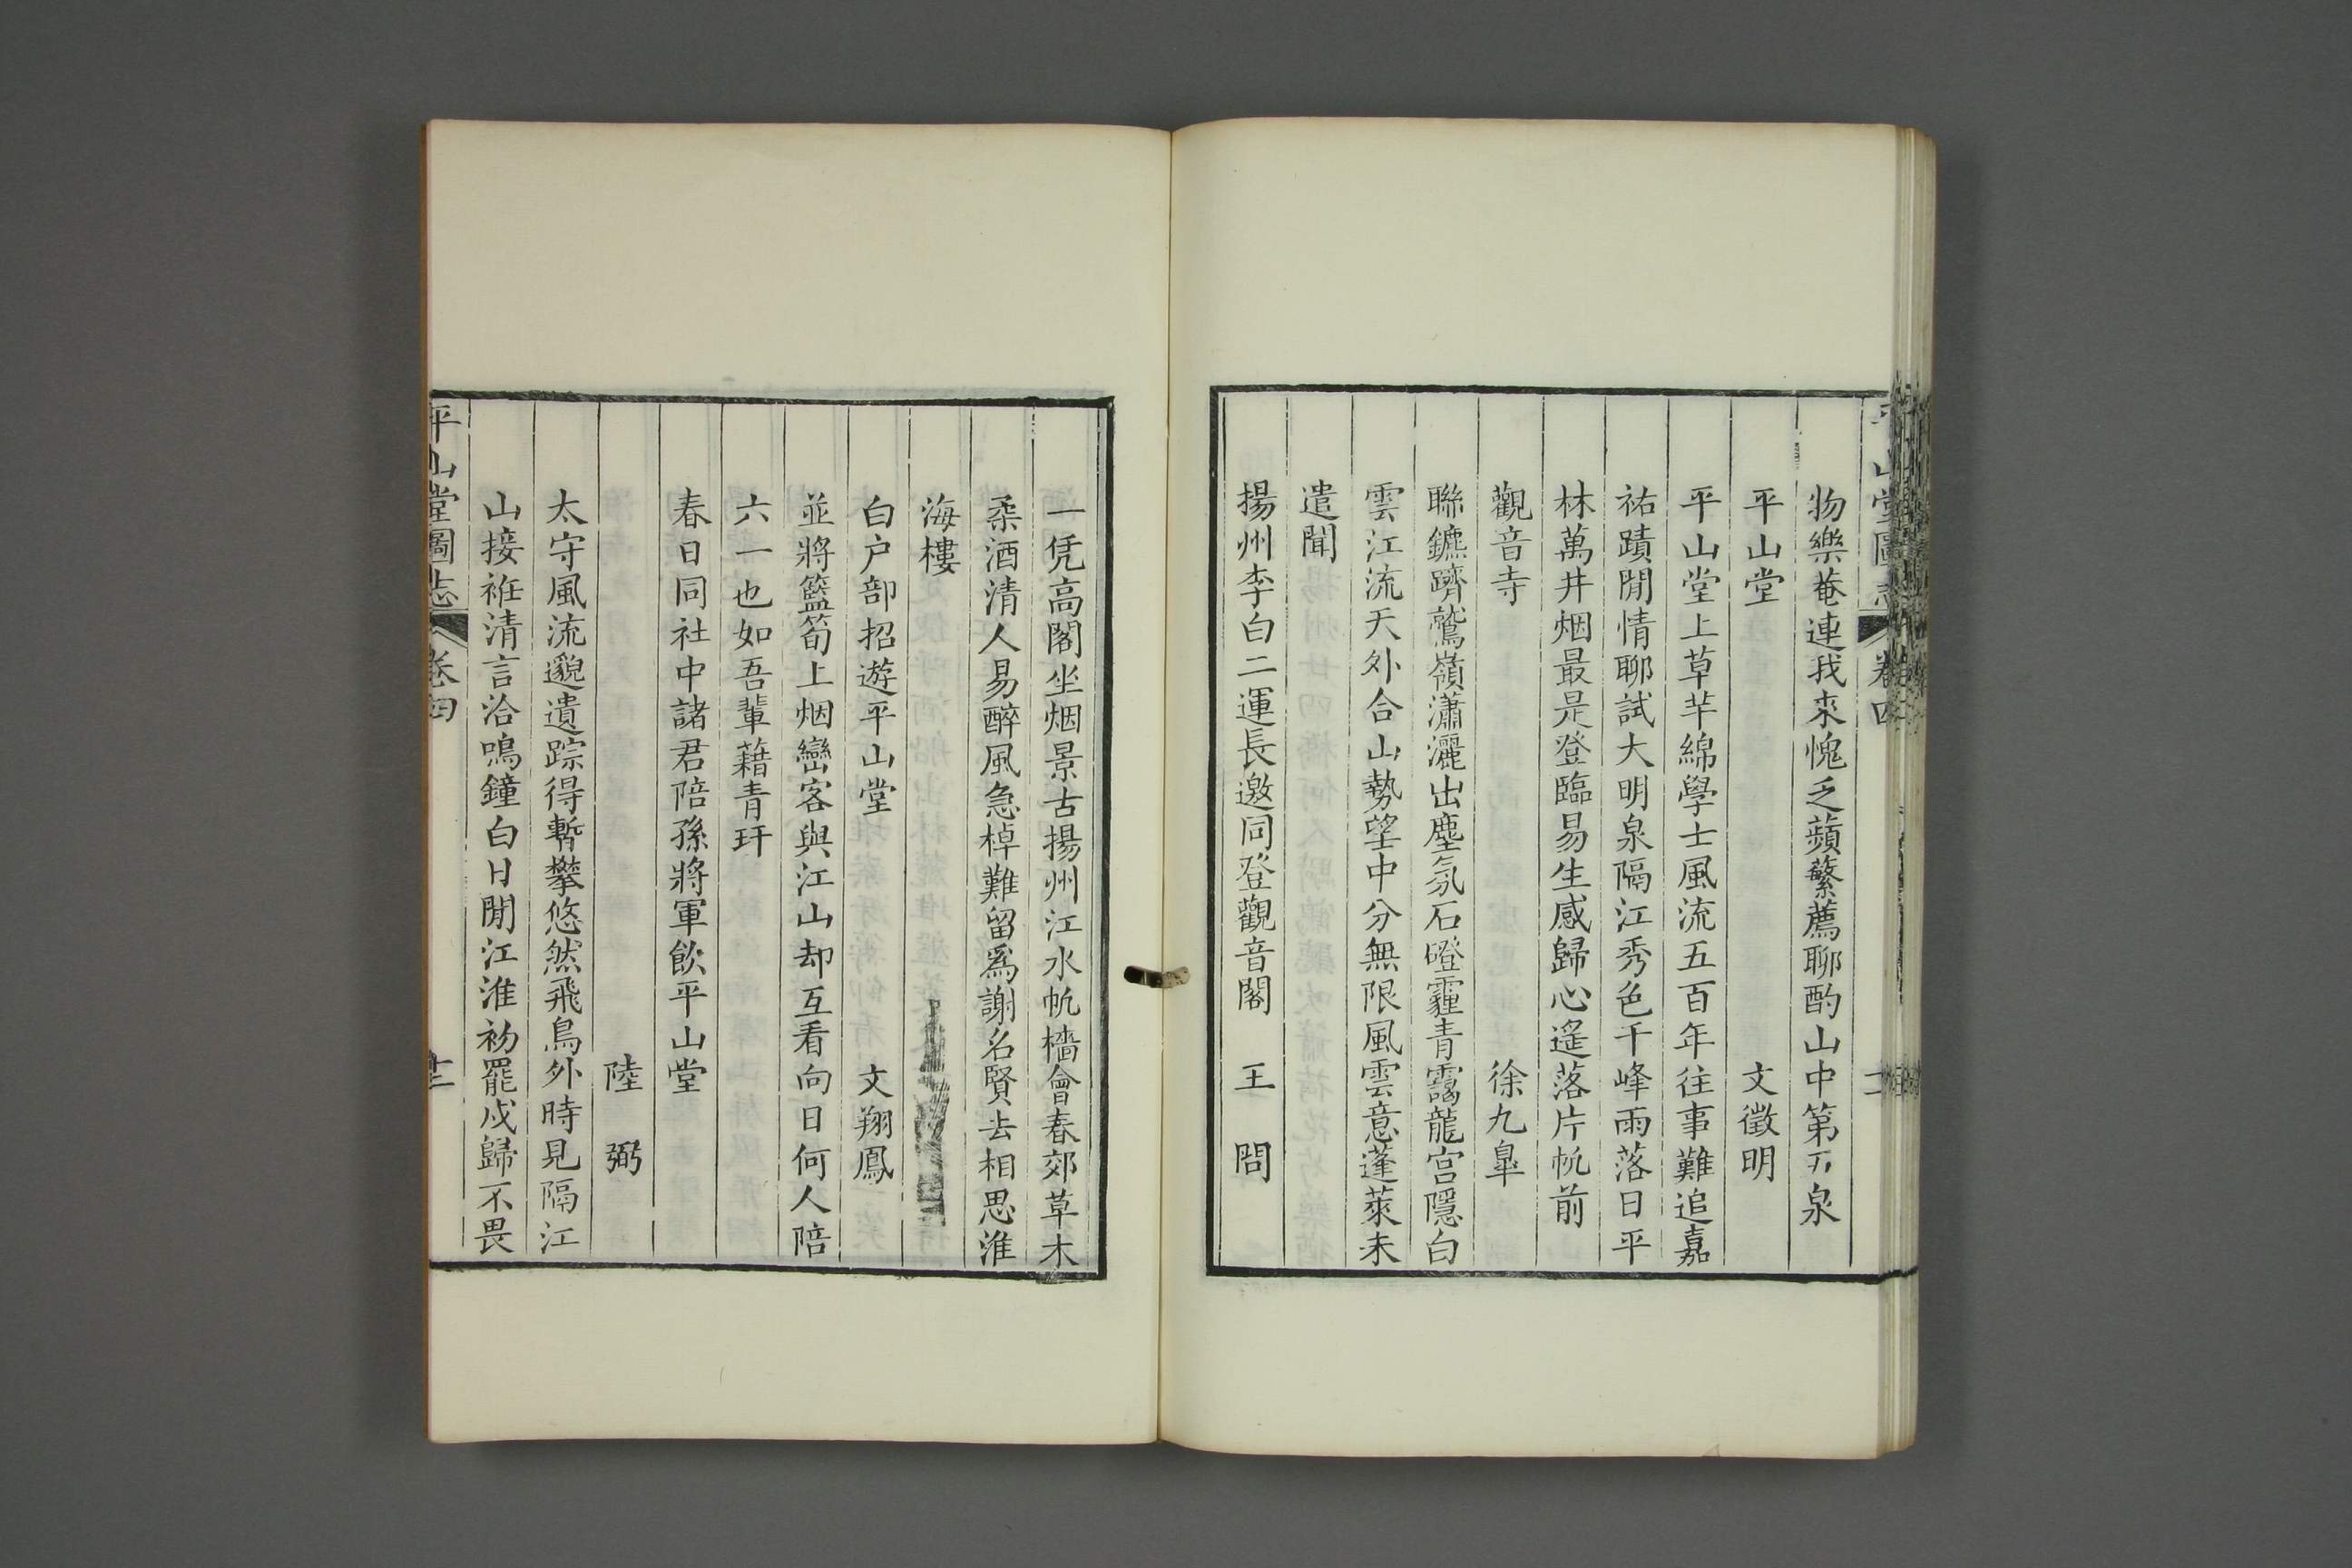 平山堂圖志 卷四
物樂菴連我来愧乏蘋蘩薦聊酌山中第五泉
平山堂 文徵明
平山堂上草芊綿學士風流五百年往事難追嘉
祐蹟閒情聊試大明泉隔江秀色千峰雨落日平
林萬井烟最是登臨易生感歸心遥落片帆前
觀音寺 徐九臯
聯鑣躋鷲嶺瀟灑出塵氛石磴霾青靄龍宫隱白
雲江流天外合山勢望中分無限風雲意蓬萊未
遣聞
揚州李白二運長邀同登觀音閣 王 問
一凭高閣坐烟景古揚州江水帆檣會春郊草木
柔酒清人易醉風急棹難留爲謝名賢去相思淮
海樓
白户部招遊平山堂 文翔鳳
並將籃筍上烟巒客與江山却互看向日何人陪
六一也如吾輩藉青玕
春日同社中諸君陪孫將軍飲平山堂
陸 弼
太守風流邈遺踪得暫攀悠然飛鳥外時見隔江
山接袵清言洽鳴鐘白日閒江淮初罷戍歸不畏
平山堂圖志 卷四 十二